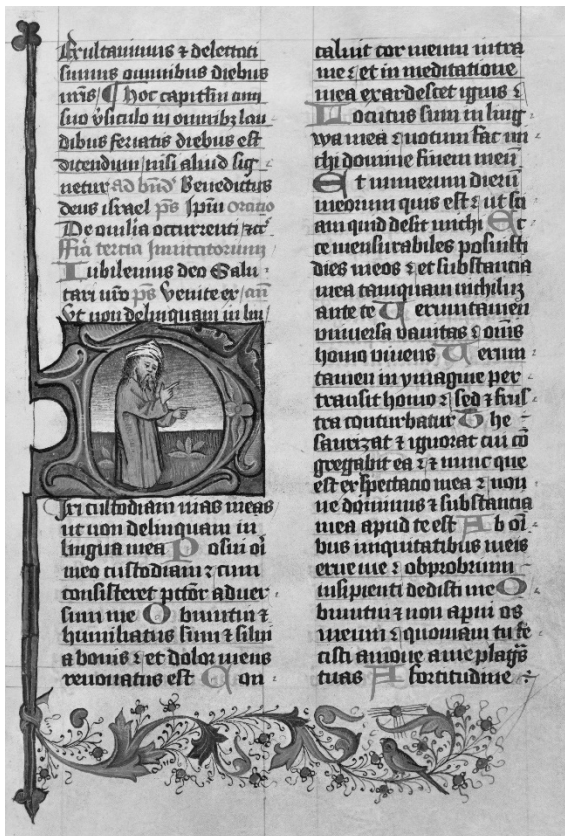 Exultavimus ⁊ delectati
sumus omnibus diebus
nr̄is ¶ Hoc capitlm̄ cum
suo v̄siculo in omnibz lau
dibus ferialis diebus est
dicendum nisi aliud sig
netur ad bn̄d Benedictus
deus israel ps̄ Ipm̄ oratio
De omilia occurrenti ⁊cͬ
ffīa tercia Inuitatorium
Iubilemus deo Salu
tari nr̄o ps̄ Venite ex an̄
Vt non delinquam in lin
Dixi custodiam vias meas
ut non delinquam in
lingua mea Posui oī
meo custodiam ⁊ cum
consisteret pctōr aduer
sum me Obmutui ⁊
humiliatus sum ⁊ silui
a bonis ⁊ et dolor meus
renouatus est Con
caluit cor meum intra
me ⁊ et in meditatione
mea exardescet ignis ⁊
Locutus sum in ling
wa mea ⁊ notum fac mi
chi domine finem meū
Et numerum dierū
meorum quis est ⁊ ut sci
am quid desit michi Ec
ce mensurabiles posuisti
dies meos ⁊ et substantia
mea tamquam nichilūz
ante te Ueruntamen
vniuersa vanitas ⁊ omīs
homo viuens Uerum
tamen in ymagine per
transit homo ⁊ sed ⁊ frus
tra conturbatur The
saurizat ⁊ ignorat cui cō
gregabit ea ⁊ ⁊ nunc que
est exspectatio mea ⁊ non
ne dominus ⁊ substantia
mea apud te est Ab oī
bus iniquitatibus meis
erue me ⁊ obprobrium
insipienti dedisti me O
bmutui ⁊ non aperui os
meum ⁊ quoniam tu fe
cisti amoue a me plagās
tuas A fortitudine ⁊